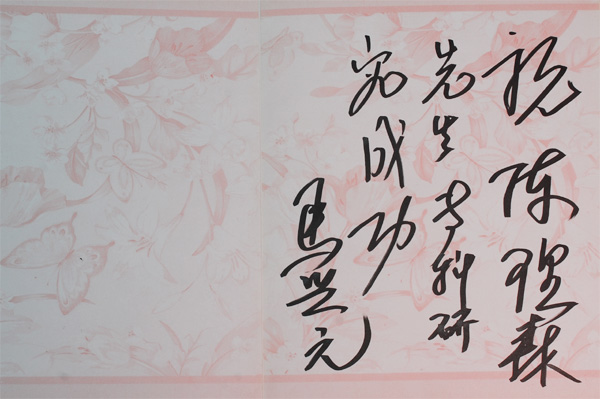 祝陈理森
先生专科研
究成功
马兴元